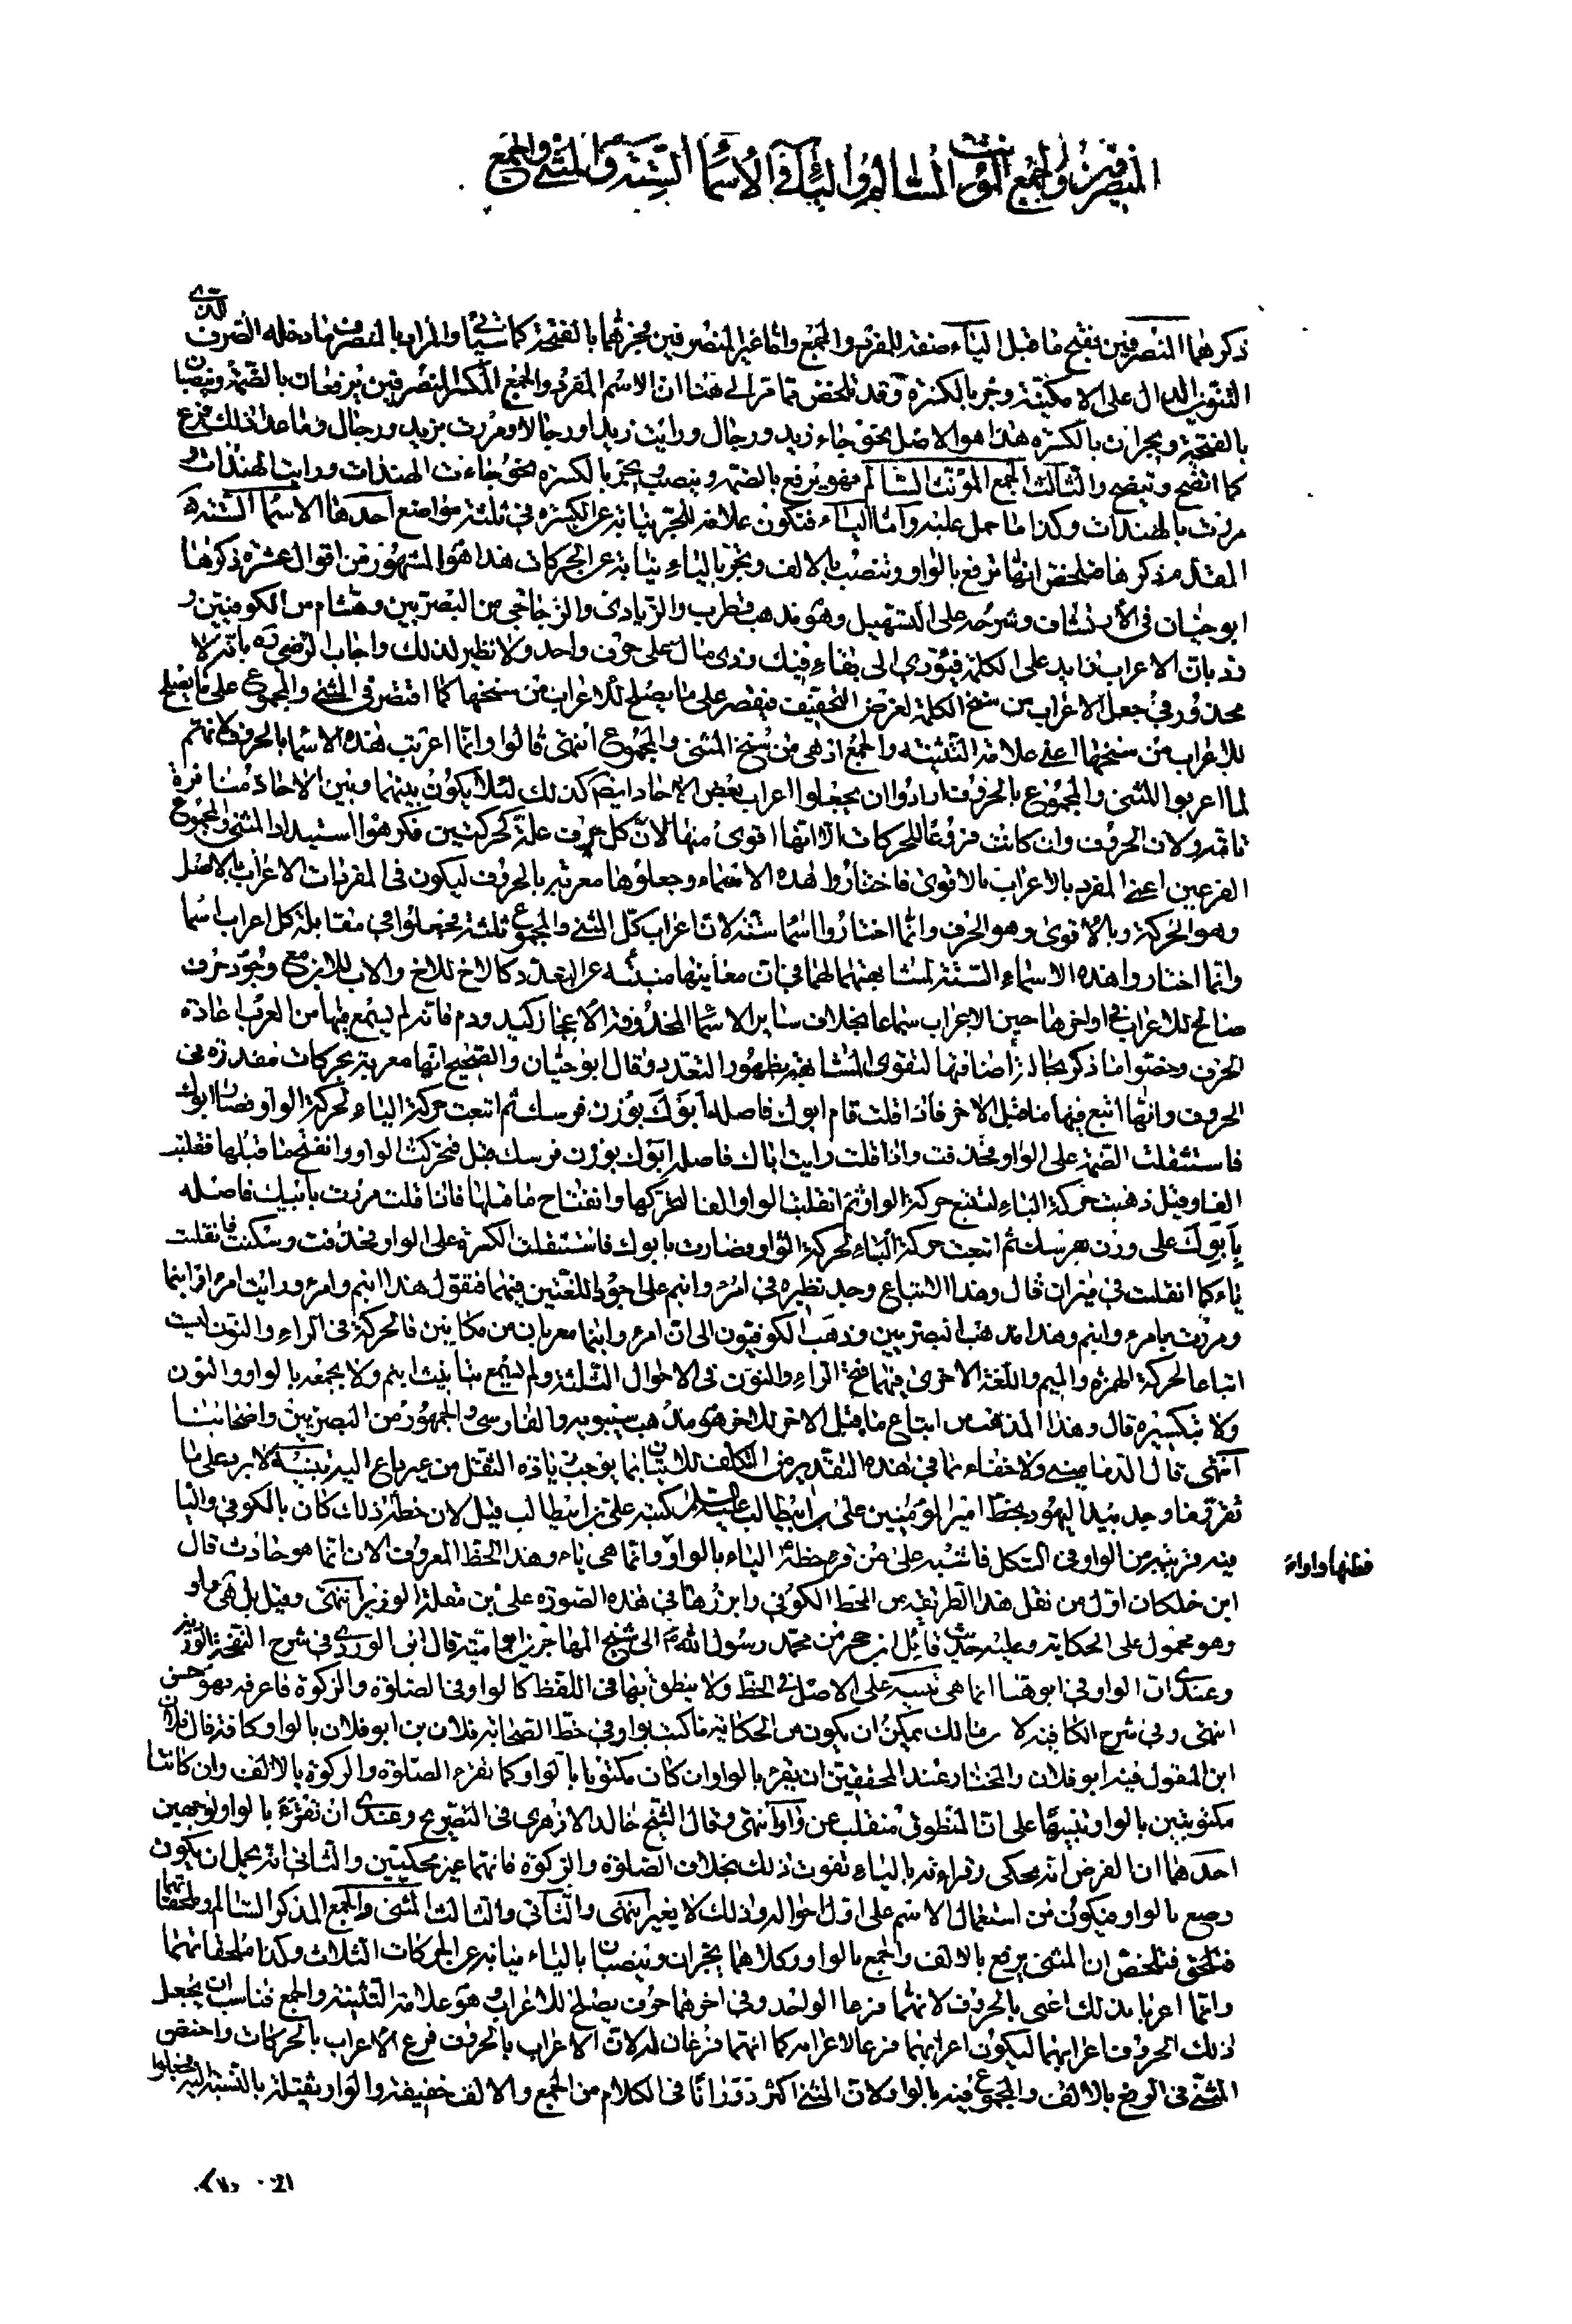 المنصرفين والجمع المؤنث السالم والياء في الأسماء الستة والمثنى والجمع
ذكرهما المنصرفين بفتح ما قبل الياء صفة للمفرد والجمع واما غير المنصرفين فجرهما بالفتحة كما سيأتي والمراد بالمنصرف ما دخله الصرف الذي
التنوين الدال على الامكنية وجر بالكسرة وقد تلخص مما مر الى هنا ان الاسم المفرد والجمع المكسر المنصرفين يرفعان بالضمة وينصبان
بالفتحة ويجران بالكسرة هذا هو الاصل نحو جاء زيد ورجال ورايت زيدا ورجالا ومررت بزيد ورجال وما عدا ذلك فرع
كما اتضح ويتضح والثالث الجمع المؤنث السالم فهو يرفع بالضمة وينصب ويجر بالكسرة نحو جاءت الهندات ورايت الهندات و
مررت بالهندات وكذا ما حمل عليه واما الياء فتكون علامة للجر نيابة عن الكسرة في ثلثة مواضع احدها الاسماء الستة
المقدم ذكرها فتلخص انها ترفع بالواو وتنصب بالالف وتجر بالياء نيابة عن الحركات هذا هو المشهور من اقوال عشرة ذكرها
ابو حيان في الارتشاف وشرحه على التسهيل وهو مذهب قطرب والزيادي والزجاجي من البصريين وهشام من الكوفيين و
رد بان الاعراب زايد على الكلمة فيؤدي الى بقاء فيك وذي مال على حرف واحد ولا نظير لذلك واجاب الرضي ره بانه لا
محذور في جعل الاعراب من سنخ الكلمة لغرض التخفيف فيقصر على ما يصلح للاعراب من سنخها كما اقتصر في المثنى والمجموع على ما يصلح
للاعراب من سنخها اعني علامة التثنية والجمع اذ هي من سنخ المثنى والمجموع انتهى قالوا وانما اعربت هذه الاسما بالحرف لانهم
لما اعربوا المثنى والمجموع بالحروف ارادوا ان يجعلوا اعراب بعض الاحاد ايضا كذلك لئلا يكون بينهما وبين الاحاد منافرة
تامة ولان الحروف وان كانت فروعا للحركات الا انها اقوى منها لان كل حرف علة كحركتين فكرهوا استبداد المثنى والمجموع
الفرعين اعني المفرد بالاعراب بالاقوى فاختاروا هذه الاسماء وجعلوها معربة بالحروف ليكون في المفردات الاعراب بالاصل
وهو الحركة وبالاقوى وهو الحرف وانما اختاروا اسما ستة لان اعراب كل المثنى والمجموع ثلثة فجعلوا في مقابلة كل اعراب اسما
وانما اختاروا هذه الاسماء الستة لمشابهتهما لهما في ان معانيها منبئة عن التعدد كالاخ للاخ والاب للابن مع وجود حرف
صالح للاعراب في اواخرها حين الاعراب سماعا بخلاف ساير الاسما المحذوفة الاعجاز كيد ودم فانه لم يسمع فيها من العرب اعادة
الحرف وخصوا ما ذكر بحالة اضافتها لتقوى المشابهة بظهور التعدد وقال ابو حيان والصحيح انها معربة بحركات مقدرة في
الحروف وانها اتبع فيها ما قبل الاخر فاذا قلت قام ابوك فاصله ابوك بوزن فرسك ثم اتبعت حركة الباء لحركة الواو فصار ابوك
فاستثقلت الضمة على الواو فحذفت واذا قلت رايت اباك فاصله ابوك بوزن فرسك قبل فتحركت الواو وانفتح ما قبلها فقلبت
الفا وقيل ذهبت حركة الباء لتتبع حركة الواو ثم انقلبت الواو الفا لتحركها وانفتاح ما قبلها فاذا قلت مررت بابيك فاصله
بابوك على وزن بفرسك ثم اتبعت حركة الباء لحركة الواو فصارت بابوك فاستثقلت الكسرة على الواو فحذفت وسكنت فانقلبت
ياء كما انقلبت في ميزان قال وهذا الاتباع وجد نظيره في امرء وابنم على اجود اللغتين فيهما فتقول هذا ابنم وامرء ورايت امرا وابنما
ومررت بامرء وابنم وهذا مذهب البصريين وذهب الكوفيون الى ان امرء وابنما معربان من مكانين فالحركة في الراء والنون ليست
اتباعا لحركة الهمزة والميم واللغة الاخرى فيهما فتح الراء والنون في الاحوال الثلثة ولم يسمع تانيث ابنم ولا يجمعه بالواو والنون
ولا تكسيره قال وهذا المذهب من اتباع ما قبل الاخر للاخر هو مذهب سيبويه والفارسي والجمهور من البصريين واصحابنا
انتهى قال الدماميني ولا خفاء بما في هذه التقدير من التكلف للاتيان بما يوجب زيادة الثقل من غير داع اليه تنبيه لا يرد على ما
تقرر ما وجد بيد اليهود بخط امير المؤمنين علي بن ابيطالب عليه السلام كتبه علي بن ابيطالب قيل لان خطه ذلك كان بالكوفي واليا
فيه قريبة من الواو في الشكل فاشتبه على من قرء خطه الياء بالواو وانما هي ياء وهذا الخط المعروف الان انما هو حادث قال
فظنها واوا
ابن خلكان اول من نقل هذه الطريقة من الخط الكوفي وابرزها في هذه الصورة علي بن مقلة الوزير انتهى وقيل بل هي واو
وهو محمول على الحكاية وعليه حديث وائل بن حجر من محمد رسول الله ص الى شيخ المهاجر بن ابو امية قال ابن الوردي في شرح التحفة الوردية
وعندي ان الواو في ابو هنا انما هي تنبيه على الاصل في الخط ولا ينطق بها في اللفظ كالواو في الصلوة والزكوة فاعرفه فهو حسن
انتهى وفي شرح الكافية لابن مالك يمكن ان يكون من الحكاية ما كتب بواو في خط الصحابة فلان بن ابو فلان بالواو كانه قال فلان
ابن المقول فيه ابو فلان والمختار عند المحققين ان يقرء بالواو وان كان مكتوبا بالواو كما تقرء الصلوة والزكوة بالالف وان كانتا
مكتوبتين بالواو تنبيها على ان المنطوق منقلب عن واو انتهى وقال الشيخ خالد الازهري في التصريح وعندي ان تقرء بالواو لوجهين
احدهما ان الغرض انه يحكى وقراءته بالياء تفوت ذلك بخلاف الصلوة والزكوة فانهما غير محكيتين والثاني انه يحتمل ان يكون
وضع بالواو فيكون من استعمال الاسم على اول احواله وذلك لا يغير انتهى والثاني والثالث المثنى والجمع المذكر السالم وملحقاتهما
فتلخص ان المثنى يرفع بالالف والجمع بالواو وكلاهما يجران وينصبان بالياء نيابة عن الحركات الثلاث وكذا ملحقاتهما
وانما اعربا بذلك اعني بالحروف لانهما فرعا الواحد وفي اخرهما حرف يصلح للاعراب وهو علامة التثنية والجمع فناسب ان يجعل
ذلك الحروف اعرابهما ليكون اعرابهما فرعا لاعرابه كما انهما فرعان له لان الاعراب بالحروف فرع الاعراب بالحركات واختص
المثنى في الرفع بالالف والمجموع فيه بالواو لان المثنى اكثر دورانا في الكلام من الجمع والالف خفيفة والواو ثقيلة بالنسبة اليه فجعلوا